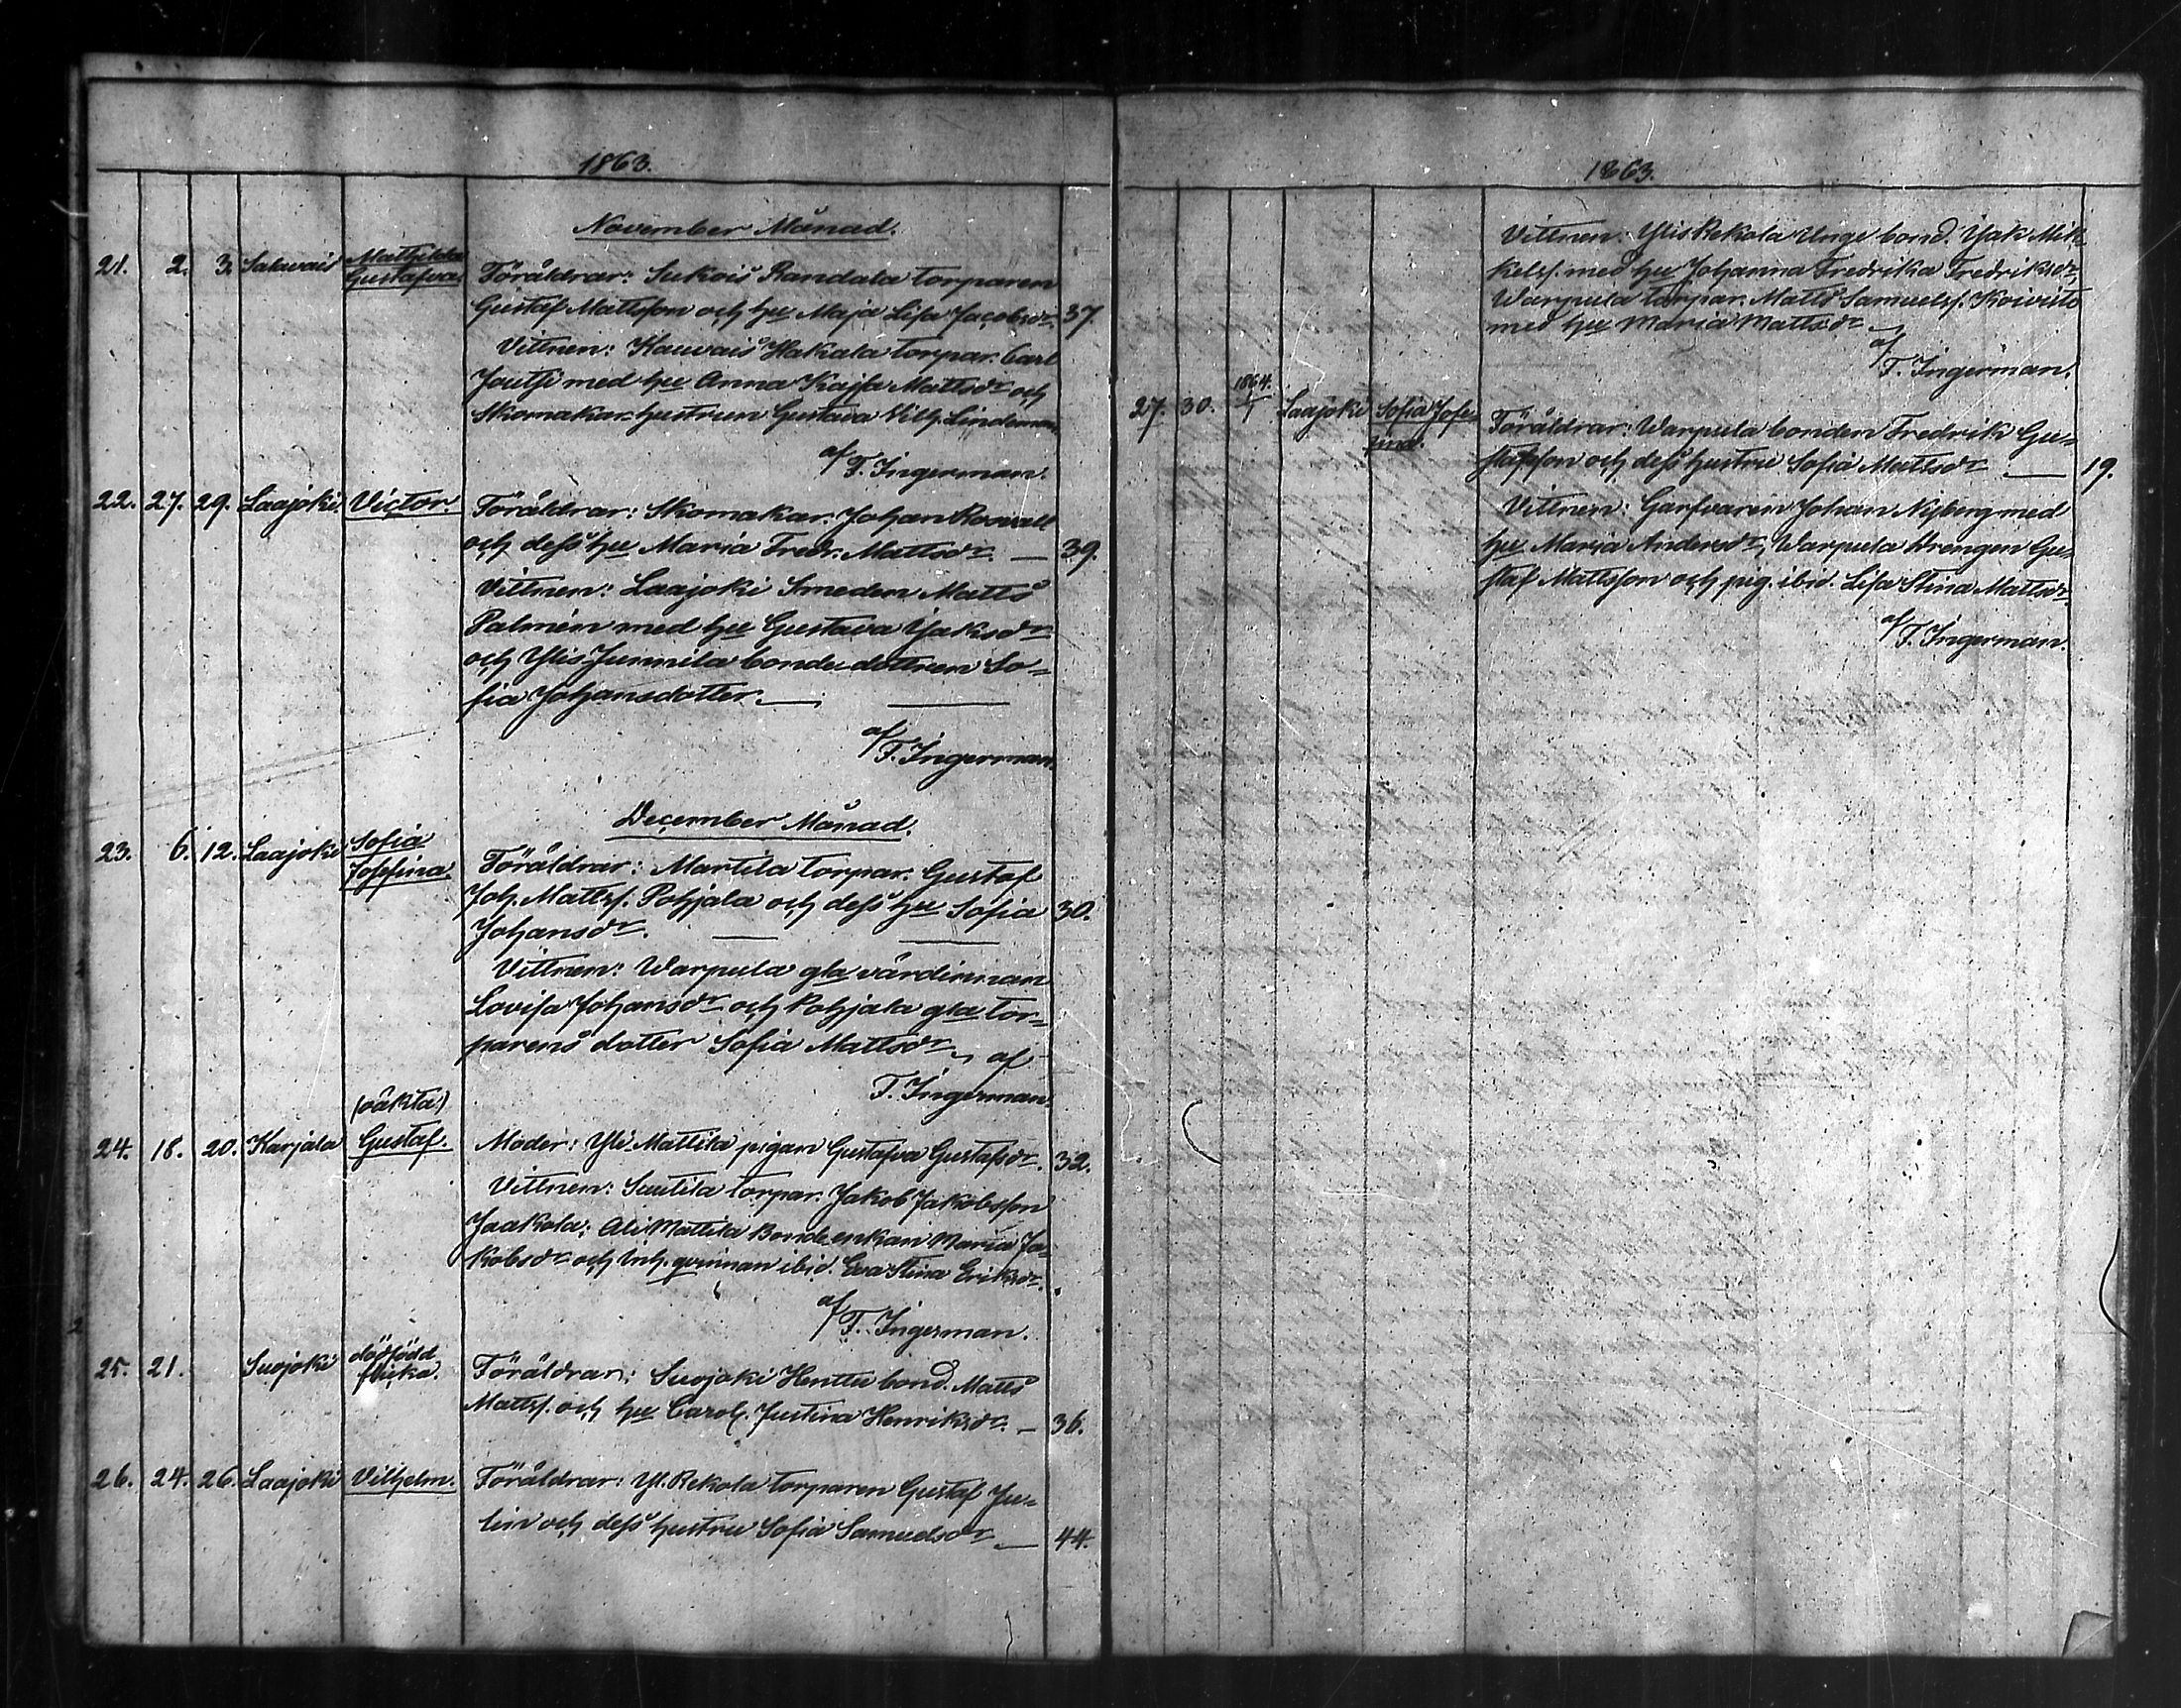 1863.
November Månad.
21. 2. 3. Salavais Mathilda
Gustafva. Föräldrar: Sukois Randala torparen
Gustaf Mattsson och hu Maja Lisa Jacobsdr. 37.
Vittnen: Kauvais Hakala torpar. Carl
med hu Anna Kajsa Mattsdr och
Skomakar-hustrun Gustava Vilh. Lindeman,
af
F. Ingerman.
22. 27. 29. Laajoki Victor. Föräldrar: Skomakar. Johan Rosvall
och dess hu Maria Fredr. Mattsdr. — 39.
Vittnen: Laajoki Smeden Matts
Palmén med hu Gustava Isaksdr
och Ylis-Junnila bondedottren So-
fia Johansdotter. —
af
F. Ingerman.
December Månad.
23. 6. 12. Laajoki Sofia
Josefina. Föräldrar: Martila torpar. Gustaf
Joh. Mattss. Pohjala och dess hu Sofia 30.
Johansdr. —
Vittnen: Warpula gla värdinnan
Lovisa Johansdr och Pohjala gla tor-
parens dotter Sofia Mattsdr, af
F. Ingerman.
(oäkta.)
24. 18. 20. Karjala Gustaf. Moder: Yli-Mattila pigan Gustafva Gustafsdr. 32.
Vittnen: Suutila torpar. Jakob Jakobsson
Jaakola; Ali Mattila Bondeenkan Maria Ja-
kobsdr och Inh. qvinnan ibid. Eva Stina Eriksdr.
af
F. Ingerman.
25. 21. Suojoki dödfödd
flicka. Föräldrar: Suojoki Henttu bond. Matts
Mattss. och hu Carol. Justina Henriksdr. — 36.
26. 24. 26. Laajoki Vilhelm. Föräldrar: Yl. Rekola torparen Gustaf Ju-
lin och dess hustru Sofia Samuelsdr — 44.
1863.
Vittnen: Ylis Rekola Unge bond. Isak Mik-
kelss. med hu Johanna Fredrika Fredriksdr,
Warpula torpar. Matts Samuelss. Koivisto
med hu Maria Mattsdr
af
F. Ingerman.
1864.
27. 30. 1/1 Laajoki Sofia Jose-
fina. Föräldrar: Warpula bonden Fredrik Gu-
stafsson och dess hustru Sofia Mattsdr — 19.
Vittnen: Garfvaren Johan Nyberg med
hu Maria Andersdr, Warpula Drengen Gu-
staf Mattsson och pig. ibid. Lisa Stina Mattsdr.
af
F. Ingerman.